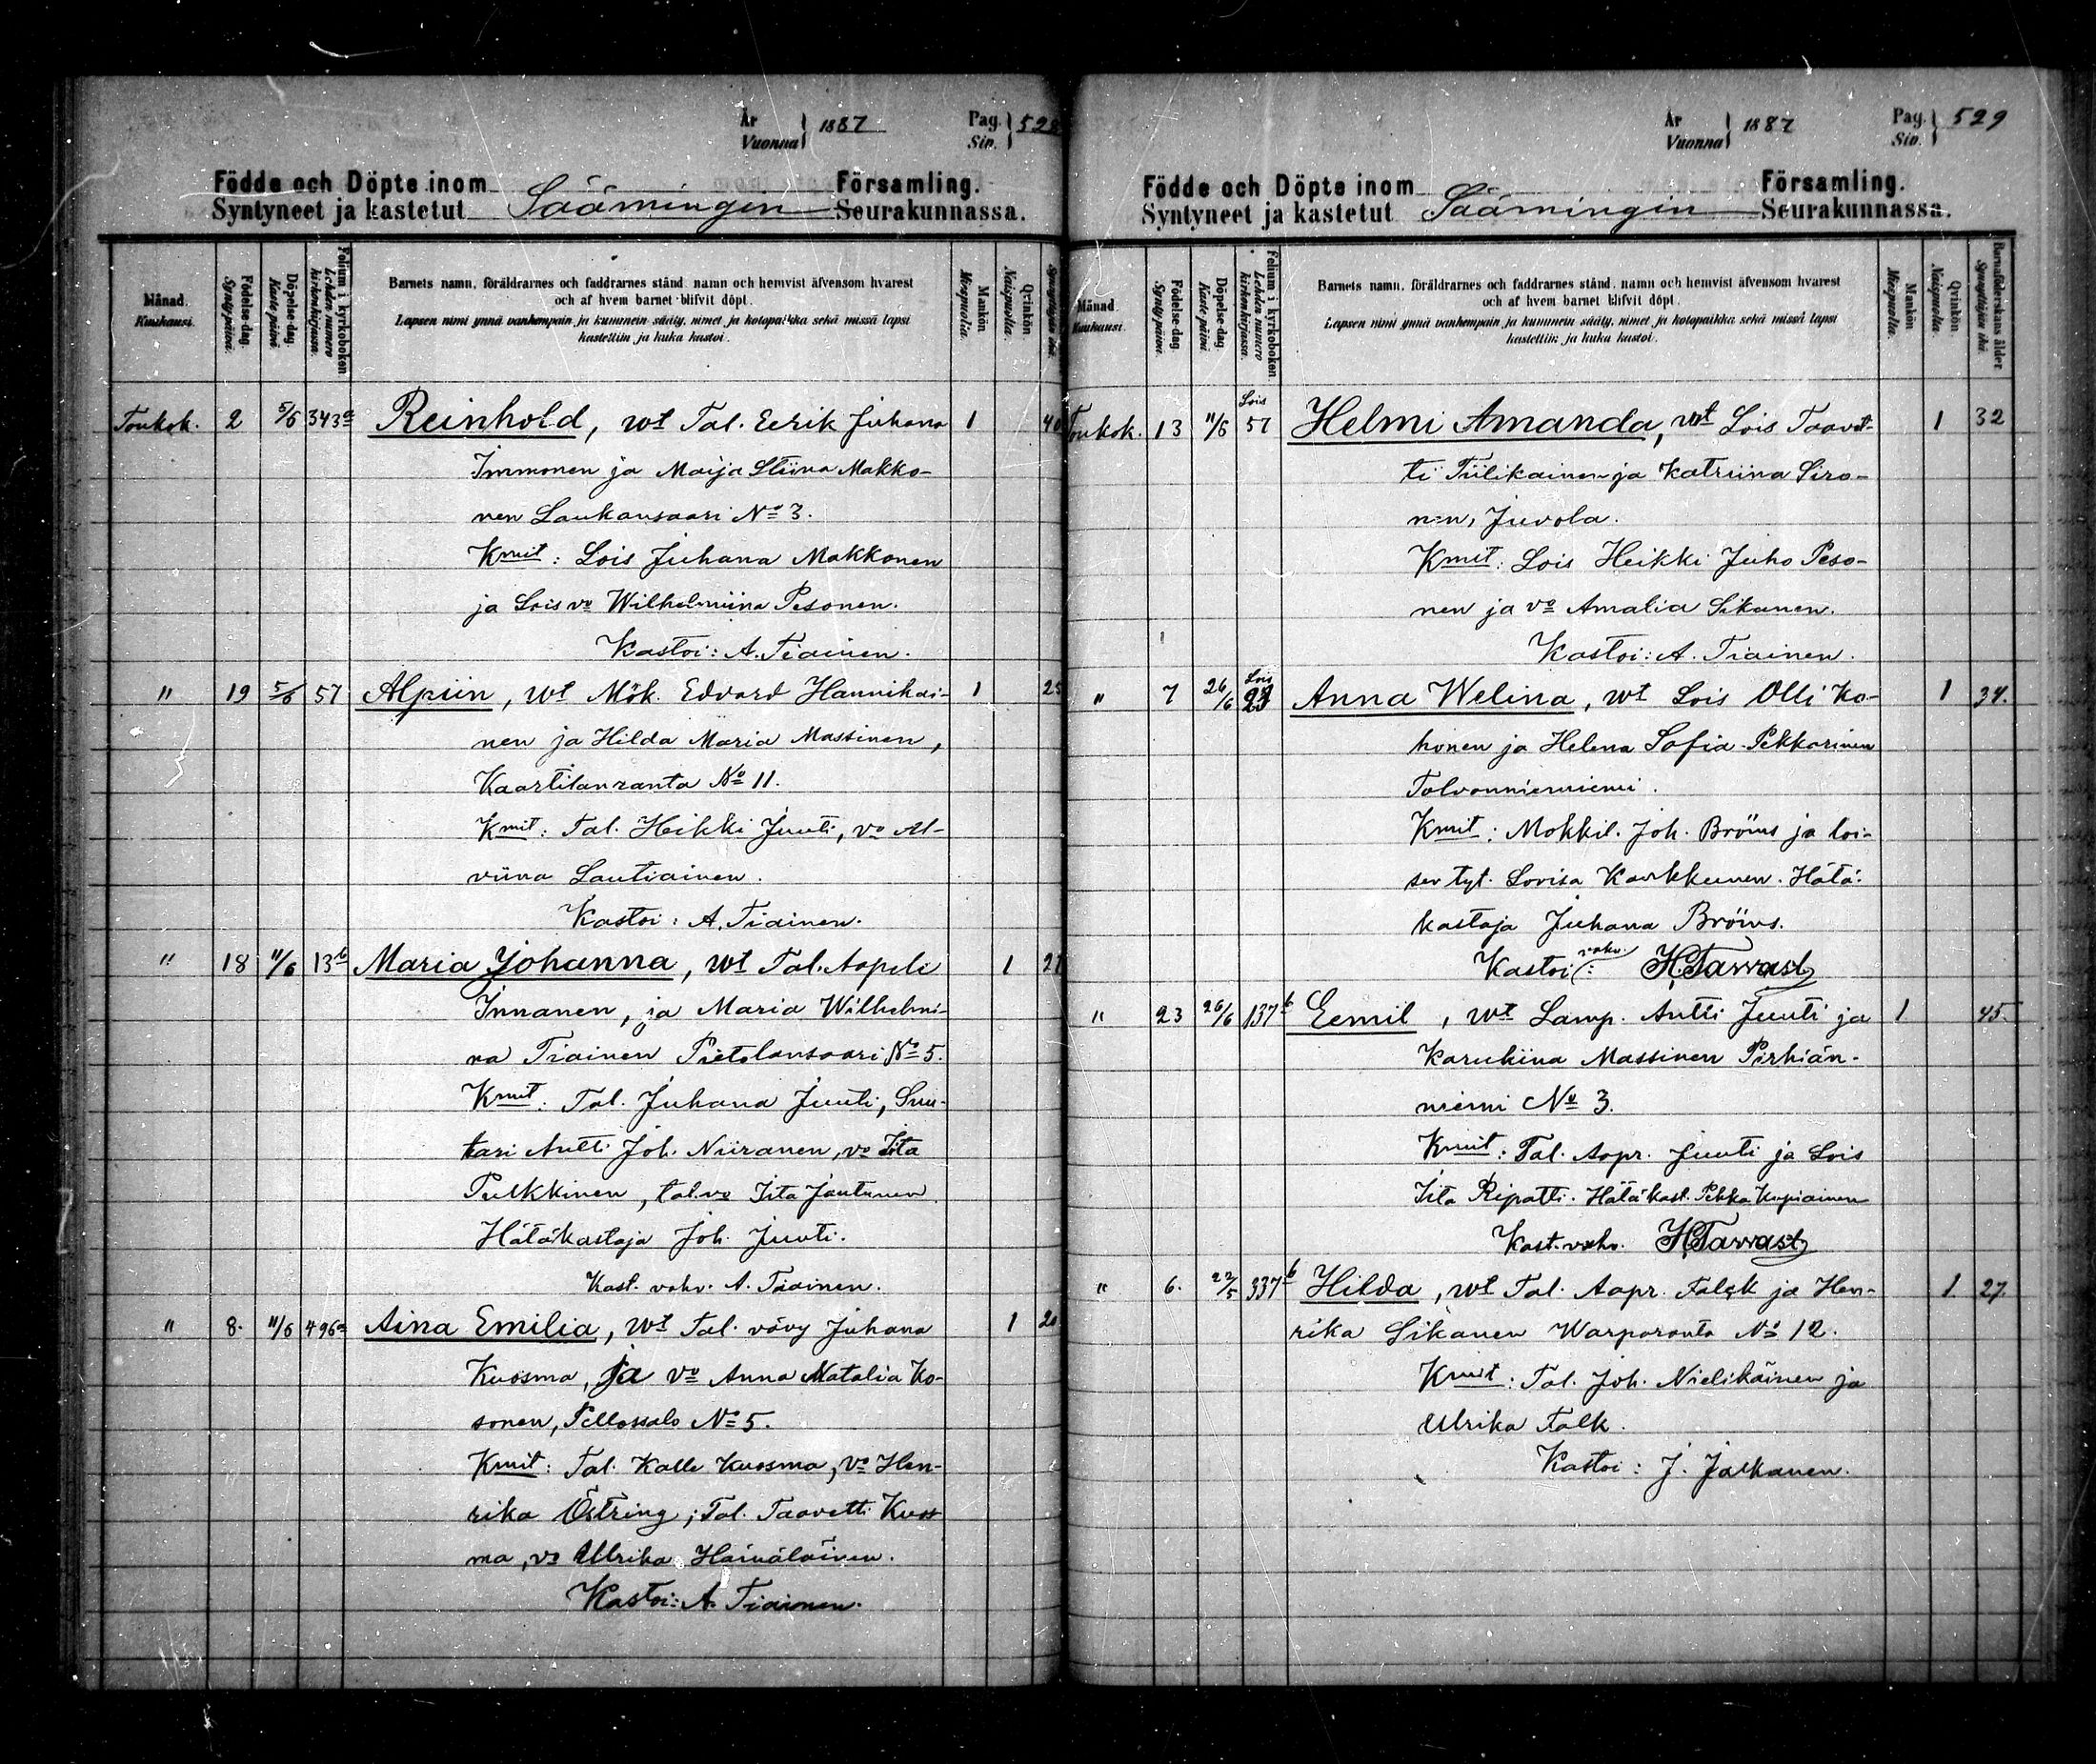 År
Vuonna } 1887
Pag.
Siv. } 528
Födde och Döpte inom Församling.
Syntyneet ja kastetut Säämingin Seurakunnassa.
Månad. Kuukausi.
Födelse-dag. Synty-päivä.
Döpelse-dag. Kaste-päivä.
Folium i kyrkoboken. Lehden numero kirkonkirjassa.
Barnets namn, föräldrarnes och faddrarnes stånd, namn och hemvist äfvensom hvarest
och af hvem barnet blifvit döpt.
Lapsen nimi ynnä vanhempain ja kummein sääty, nimet ja kotopaikka sekä missä lapsi
kastettiin ja kuka kastoi.
Mankön. Miespuolia.
Qvinkön. Naispuolia.
Toukok. 2 5/6 343a Reinhold, wt Tal. Eerik Juhana 1 40
Immonen ja Maija Stiina Makko-
nen Laukansaari No 3.
Kmit: Lois Juhana Makkonen
ja Lois vo Wilhelmiina Pesonen.
Kastoi: A. Tiainen.
" 19 5/6 57 Alpiin, wt Mök. Edvard Hannikai- 1 25
nen ja Hilda Maria Massinen,
Kaartilanranta No 11.
Kmit: Tal. Heikki Juuti, vo Al-
viina Lautiainen.
Kastoi: A. Tiainen.
" 18 11/6 13b Maria Johanna, wt Tal. Aapeli 1 27
Innanen, ja Maria Wilhelmi-
na Tiainen Pietolansaari No 5.
Kmit: Tal. Juhana Juuti, Suu-
tari Antti Joh. Niiranen, vo Iita
Pulkkinen, tal. vo Iita Jantunen.
Hätäkastaja Joh. Juuti.
Kast. vahv. A. Tiainen.
" 8. 11/6 496a Aina Emilia, wt Tal. vävy Juhana 1 20
Kuosma, ja vo Anna Natalia Ko-
sonen, Pellossalo No 5.
Kmit: Tal. Kalle Kuosma, vo Hen-
rika Östring; Tal. Taavetti Kuos-
ma, vo Ulrika Häinäläinen.
Kastoi: A. Tiainen.
År
Vuonna } 1887
Pag.
Siv. } 529
Födde och Döpte inom Församling.
Syntyneet ja kastetut Säämingin Seurakunnassa.
Månad. Kuukausi.
Födelse-dag. Synty-päivä.
Döpelse-dag. Kaste-päivä.
Folium i kyrkoboken. Lehden numero kirkonkirjassa.
Barnets namn, föräldrarnes och faddrarnes stånd, namn och hemvist äfvensom hvarest
och af hvem barnet blifvit döpt.
Lapsen nimi ynnä vanhempain ja kummein sääty, nimet ja kotopaikka sekä missä lapsi
kastettiin ja kuka kastoi.
Mankön. Miespuolia.
Qvinkön. Naispuolia.
Barnaföderskans ålder. Synnyttäjän ikä.
Toukok. 13 11/6 Lois 57 Helmi Amanda, wt Lois Taavet- 1 32
ti Tiilikainen ja Katriina Siro-
nen, Juvola.
Kmit: Lois Heikki Juho Peso-
nen ja vo Amalia Sikanen.
Kastoi: A. Tiainen.
" 7 26/6 Lois Anna Welina, wt Lois Olli Ko- 1 34.
honen ja Helena Sofia Pekkarinen
Tolvanniemi.
Kmit: Mökkil. Joh. Bröms ja loi-
sen tyt. Lovisa Karkkunen. Hätä-
kastaja Juhana Bröms.
Kastoi vahv.: H. Tavvast
" 23 26/6 137b Eemil, wt Lamp. Antti Juuti ja 1 45.
Karuliina Massinen Pirhiän-
niemi No 3.
Kmit: Tal. Aapr. Juuti ja Lois
Iita Ripatti. Hätäkast. Pekka Kupiainen
Kast. vahv. H. Tavvast
" 6. 22/5 337b Hilda, wt Tal. Aapr. Falck ja Hen- 1 27.
rika Sikanen Warparanta No 12.
Kmit: Tal. Joh. Nielikäinen ja
Ulrika Falk.
Kastoi: J. Jalkanen.